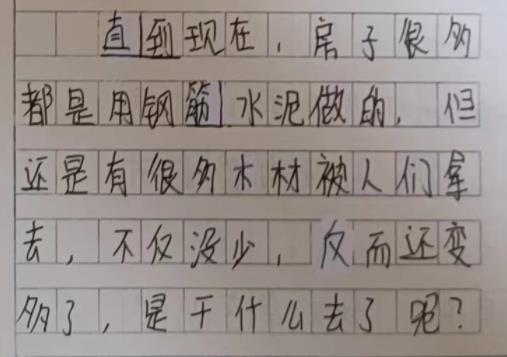 直到现在，房子很多
都是用钢筋水泥做的，但
还是有很多木材被人们拿
去，不仅没少，反而还变
多了，是干什么去了呢？